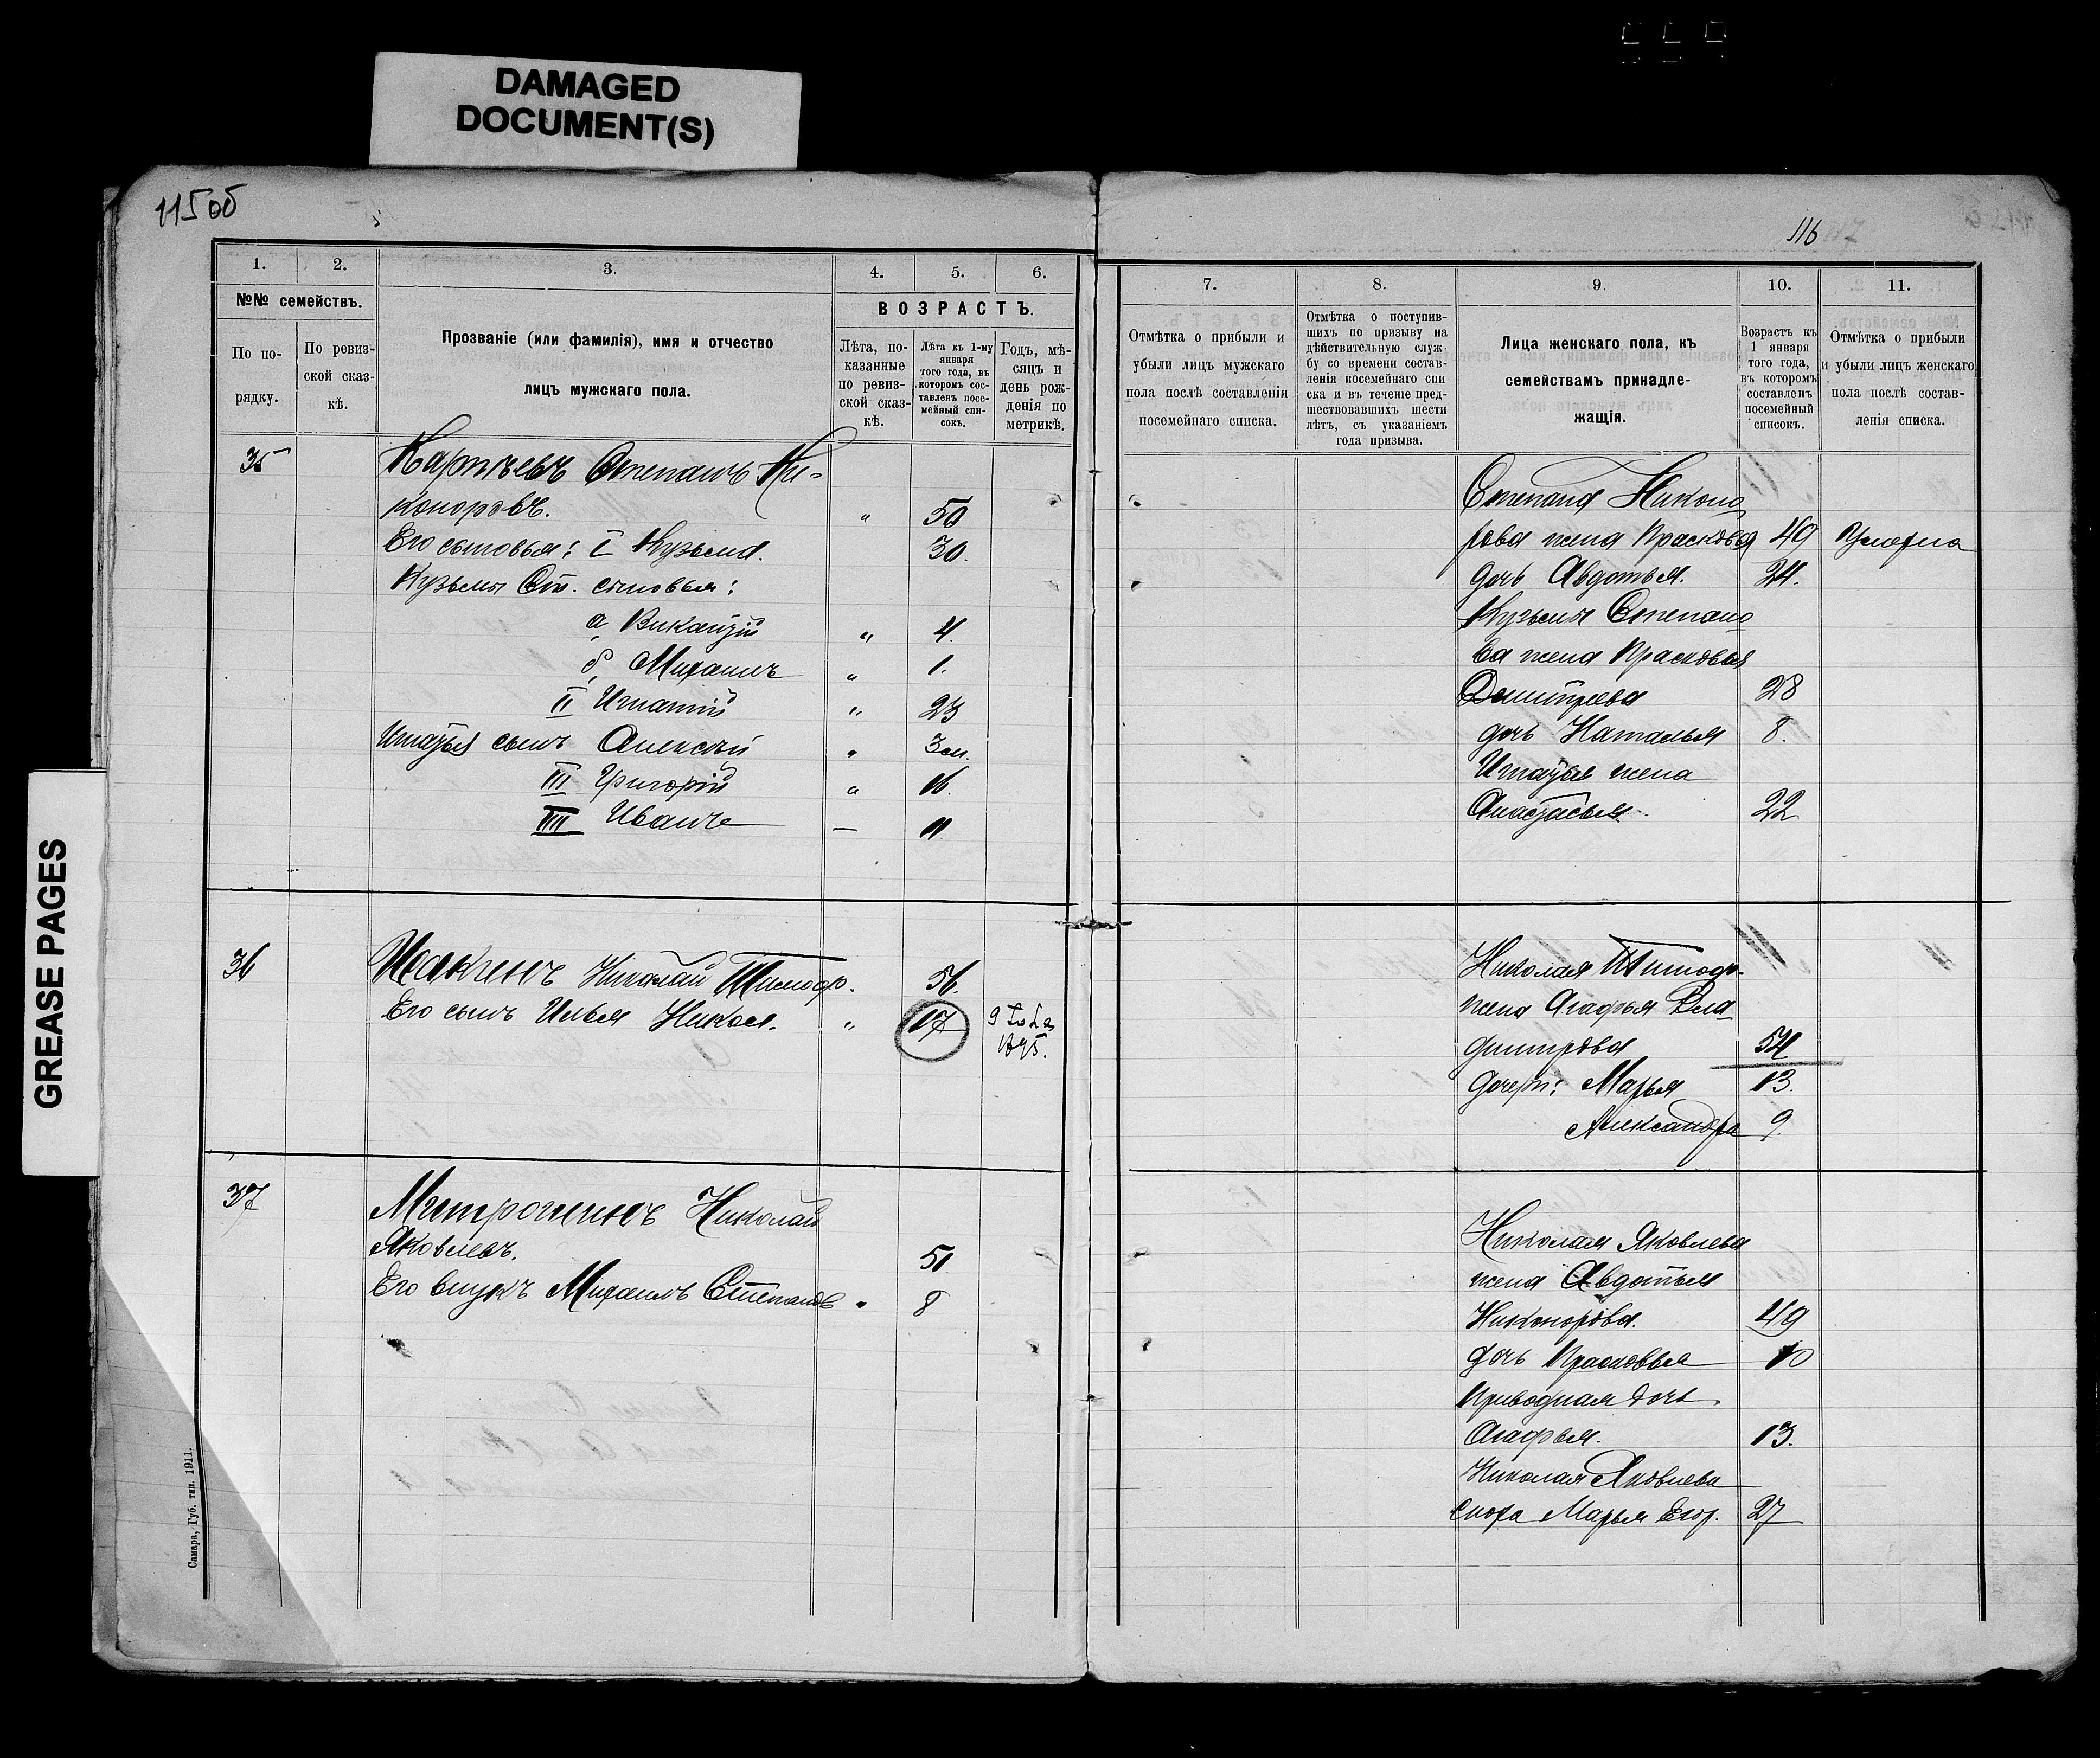 DAMAGED
DOCUMENT(S)
GREASE PAGES
115 об
1.
2.
3.
4.
5.
6.
№№ семействъ.
По по-
рядку.
По ревиз-
ской сказ-
кѣ.
Прозваніе (или фамилія), имя и отчество
лицъ мужскаго пола.
ВОЗРАСТЪ.
Лѣта, по-
казанные
по ревиз-
ской сказ-
кѣ.
Лѣта къ 1-му
января
того года, въ
которомъ сос-
тавленъ посе-
мейный спи-
сокъ.
Годъ, мѣ-
сяцъ и
день рож-
денія по
метрикѣ.
35
Степанъ Ни-
коноровъ. " 50
Его сыновья: I Кузьма. 30.
Кузьмы Ст. сыновья:
а, " 4.
б, Михаилъ " 1.
II Игнатій " 23
Игнатья сынъ Алексѣй " 3 м.
III Григорій " 16.
IIII Иванъ — 11.
36 Николай Тимоф. 56.
Его сынъ Илья Никол. " 17
1895.
37 Митрошинъ Николай
Яковлевъ. 51
Его внукъ Михаилъ Степановъ " 8
Самара, Губ. тип. 1911.
116
7.
8.
9.
10.
11.
Отмѣтка о прибыли и
убыли лицъ мужскаго
пола послѣ составленія
посемейнаго списка.
Отмѣтка о поступив-
шихъ по призыву на
дѣйствительную служ-
бу со времени состав-
ленія посемейнаго спи
ска и въ теченіе пред-
шествовавшихъ шести
лѣтъ, съ указаніемъ
года призыва.
Лица женскаго пола, къ
семействамъ принадле-
жащія.
Возрастъ къ
1 января
того года,
въ которомъ
составленъ
посемейный
списокъ.
Отмѣтка о прибыли
и убыли лицъ женскаго
пола послѣ состав-
ленія списка.
Степана Никоно
рова жена Прасковья 49 Умерла
дочь Авдотья. 24.
Кузьмы Степано
ва жена Прасковья
Дмитріева 28
дочь Наталья 8.
Игнатья жена
Анастасья. 22
Николая Тимоф.
жена Агафья Вла
димірова 54
дочери: Марья 13.
Александра 9.
Николая Яковлева
жена Авдотья
Никонорова. 49
дочь Прасковья 10
Приводная дочь
Агафья. 13.
Николая Яковлева
сноха Марья Егор. 27